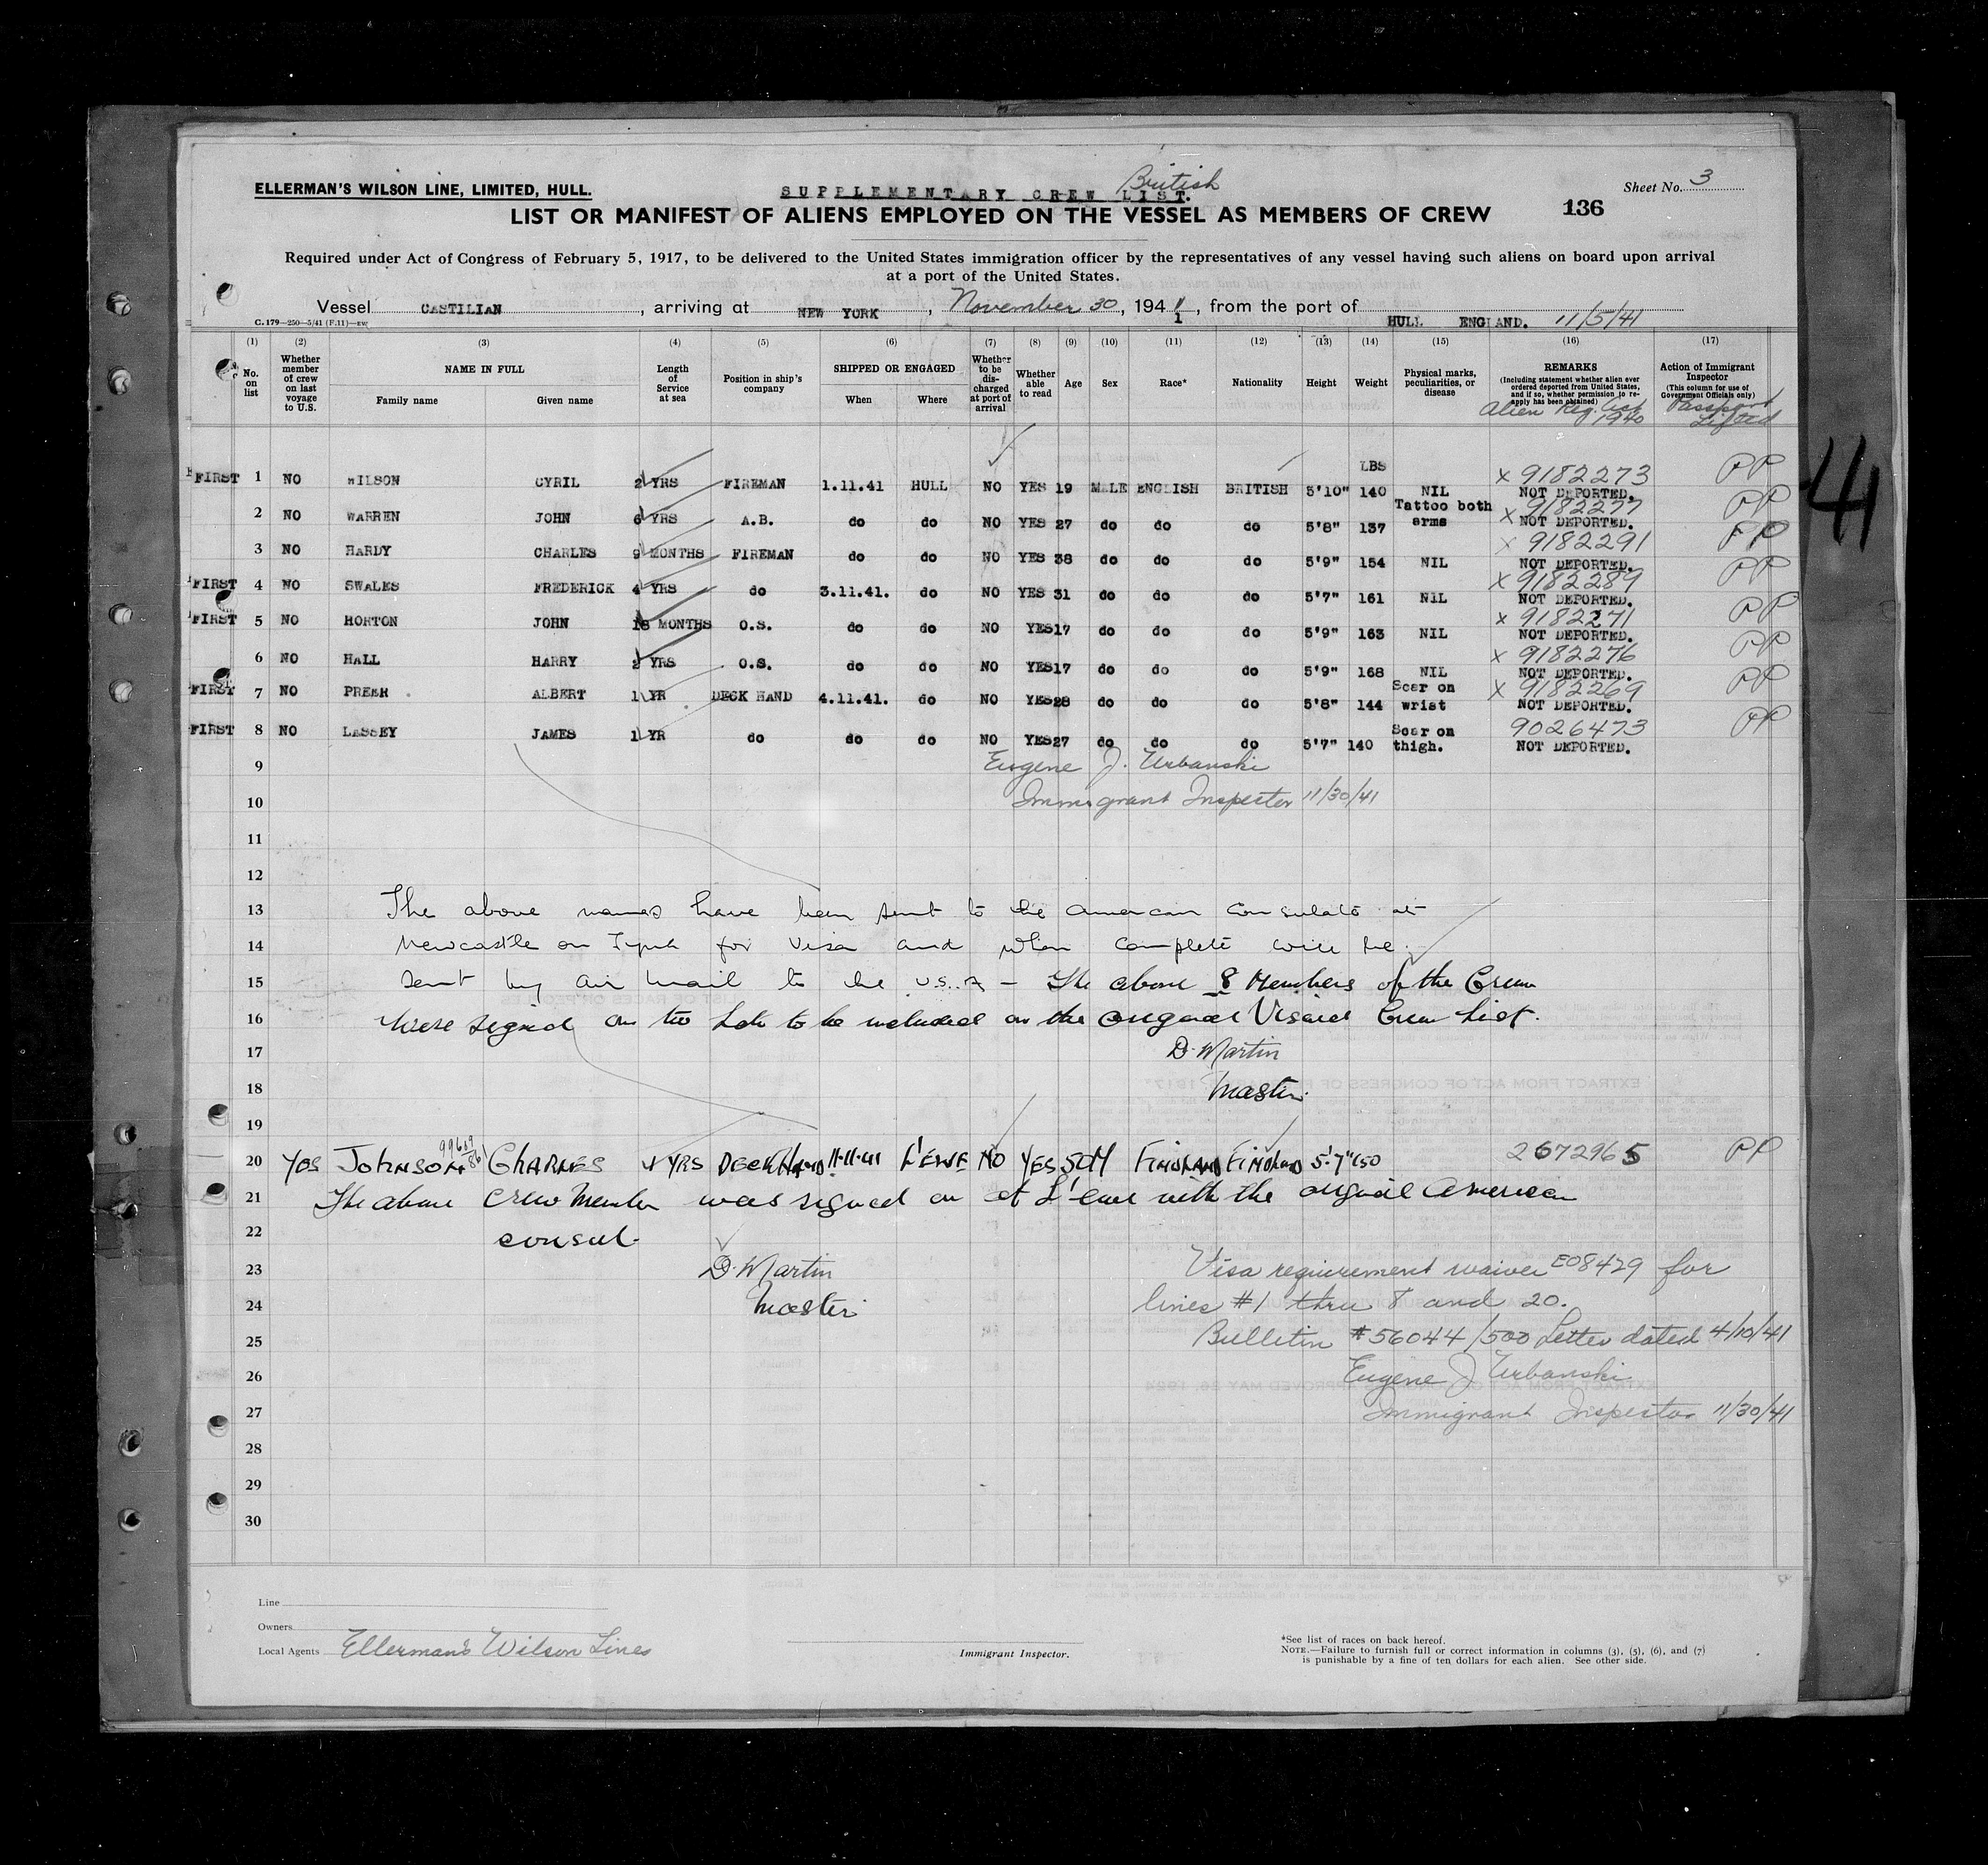 British
ELLERMAN'S WILSON LINE, LIMITED, HULL.
SUPPLEMENTARY CREW LIST.
Sheet No. 3
LIST OR MANIFEST OF ALIENS EMPLOYED ON THE VESSEL AS MEMBERS OF CREW
136
Required under Act of Congress of February 5, 1917, to be delivered to the United States immigration officer by the representatives of any vessel having such aliens on board upon arrival
at a port of the United States.
Vessel CASTILIAN, arriving at NEW YORK, November 30, 1941, from the port of HULL ENGLAND. 11/5/41
C.179—250—5/41 (F.11)—EW
(1) (2) (3) (4) (5) (6) (7) (8) (9) (10) (11) (12) (13) (14) (15) (16) (17)
No. on list
Whether member of crew on last voyage to U.S.
NAME IN FULL
Family name Given name
Length of Service at sea
Position in ship's company
SHIPPED OR ENGAGED
When Where
Whether to be discharged at port of arrival
Whether able to read
Age
Sex
Race*
Nationality
Height
Weight
Physical marks, peculiarities, or disease
REMARKS
(Including statement whether alien ever ordered deported from United States, and if so, whether permission to re-apply has been obtained)
Alien Reg. Act 1940
Action of Immigrant Inspector
(This column for use of Government Officials only)
Passport Lifted
LBS
FIRST 1 NO WILSON CYRIL 2 YRS FIREMAN 1.11.41 HULL NO YES 19 MALE ENGLISH BRITISH 5'10" 140 NIL x 9182273 NOT DEPORTED. PP
2 NO WARREN JOHN 6 YRS A.B. do do NO YES 27 do do do 5'8" 137 Tattoo both arms x 9182277 NOT DEPORTED. PP
3 NO HARDY CHARLES 9 MONTHS FIREMAN do do NO YES 38 do do do 5'9" 154 NIL x 9182291 NOT DEPORTED. PP
FIRST 4 NO SWALES FREDERICK 4 YRS do 3.11.41. do NO YES 31 do do do 5'7" 161 NIL x 9182289 NOT DEPORTED. PP
FIRST 5 NO HORTON JOHN 18 MONTHS O.S. do do NO YES 17 do do do 5'9" 163 NIL x 9182271 NOT DEPORTED. PP
6 NO HALL HARRY 2 YRS O.S. do do NO YES 17 do do do 5'9" 168 NIL x 9182276 NOT DEPORTED. PP
FIRST 7 NO ALBERT 1 YR DECK HAND 4.11.41. do NO YES 28 do do do 5'8" 144 Scar on wrist x 9182269 NOT DEPORTED. PP
FIRST 8 NO LASSEY JAMES 1 YR do do do NO YES 27 do do do 5'7" 140 Scar on thigh. 9026473 NOT DEPORTED. PP
9 Eugene J. Urbanski
10 Immigrant Inspector 11/30/41
11
12
13 The above names have been sent to the American Consulate at
14 Newcastle on Tyne for Visa and when complete will be
15 sent by air mail to the U.S.A – The above 8 Members of the Crew
16 were signed on too late to be included on the original Visaed Crew List.
17 D. Martin
18 Master.
19
20 Yes JOHNSON CHARLES 4 YRS DECK HAND 11.11.41 L'EWE NO YES 50 M FINLAND FINLAND 5'.7" 150 2672965 PP
21 The above crew member was signed on at L'ewe with the original American
22 consul.
23 D. Martin Visa requirement waiver E08429 for
24 Master lines #1 thru 8 and 20.
25 Bulletin #56044/500 Letter dated 4/10/41
26 Eugene J Urbanski
27 Immigrant Inspector 11/30/41
28
29
30
41
Line
Owners
Local Agents Ellermans Wilson Lines
Immigrant Inspector.
*See list of races on back hereof.
NOTE.—Failure to furnish full or correct information in columns (3), (5), (6), and (7)
is punishable by a fine of ten dollars for each alien. See other side.